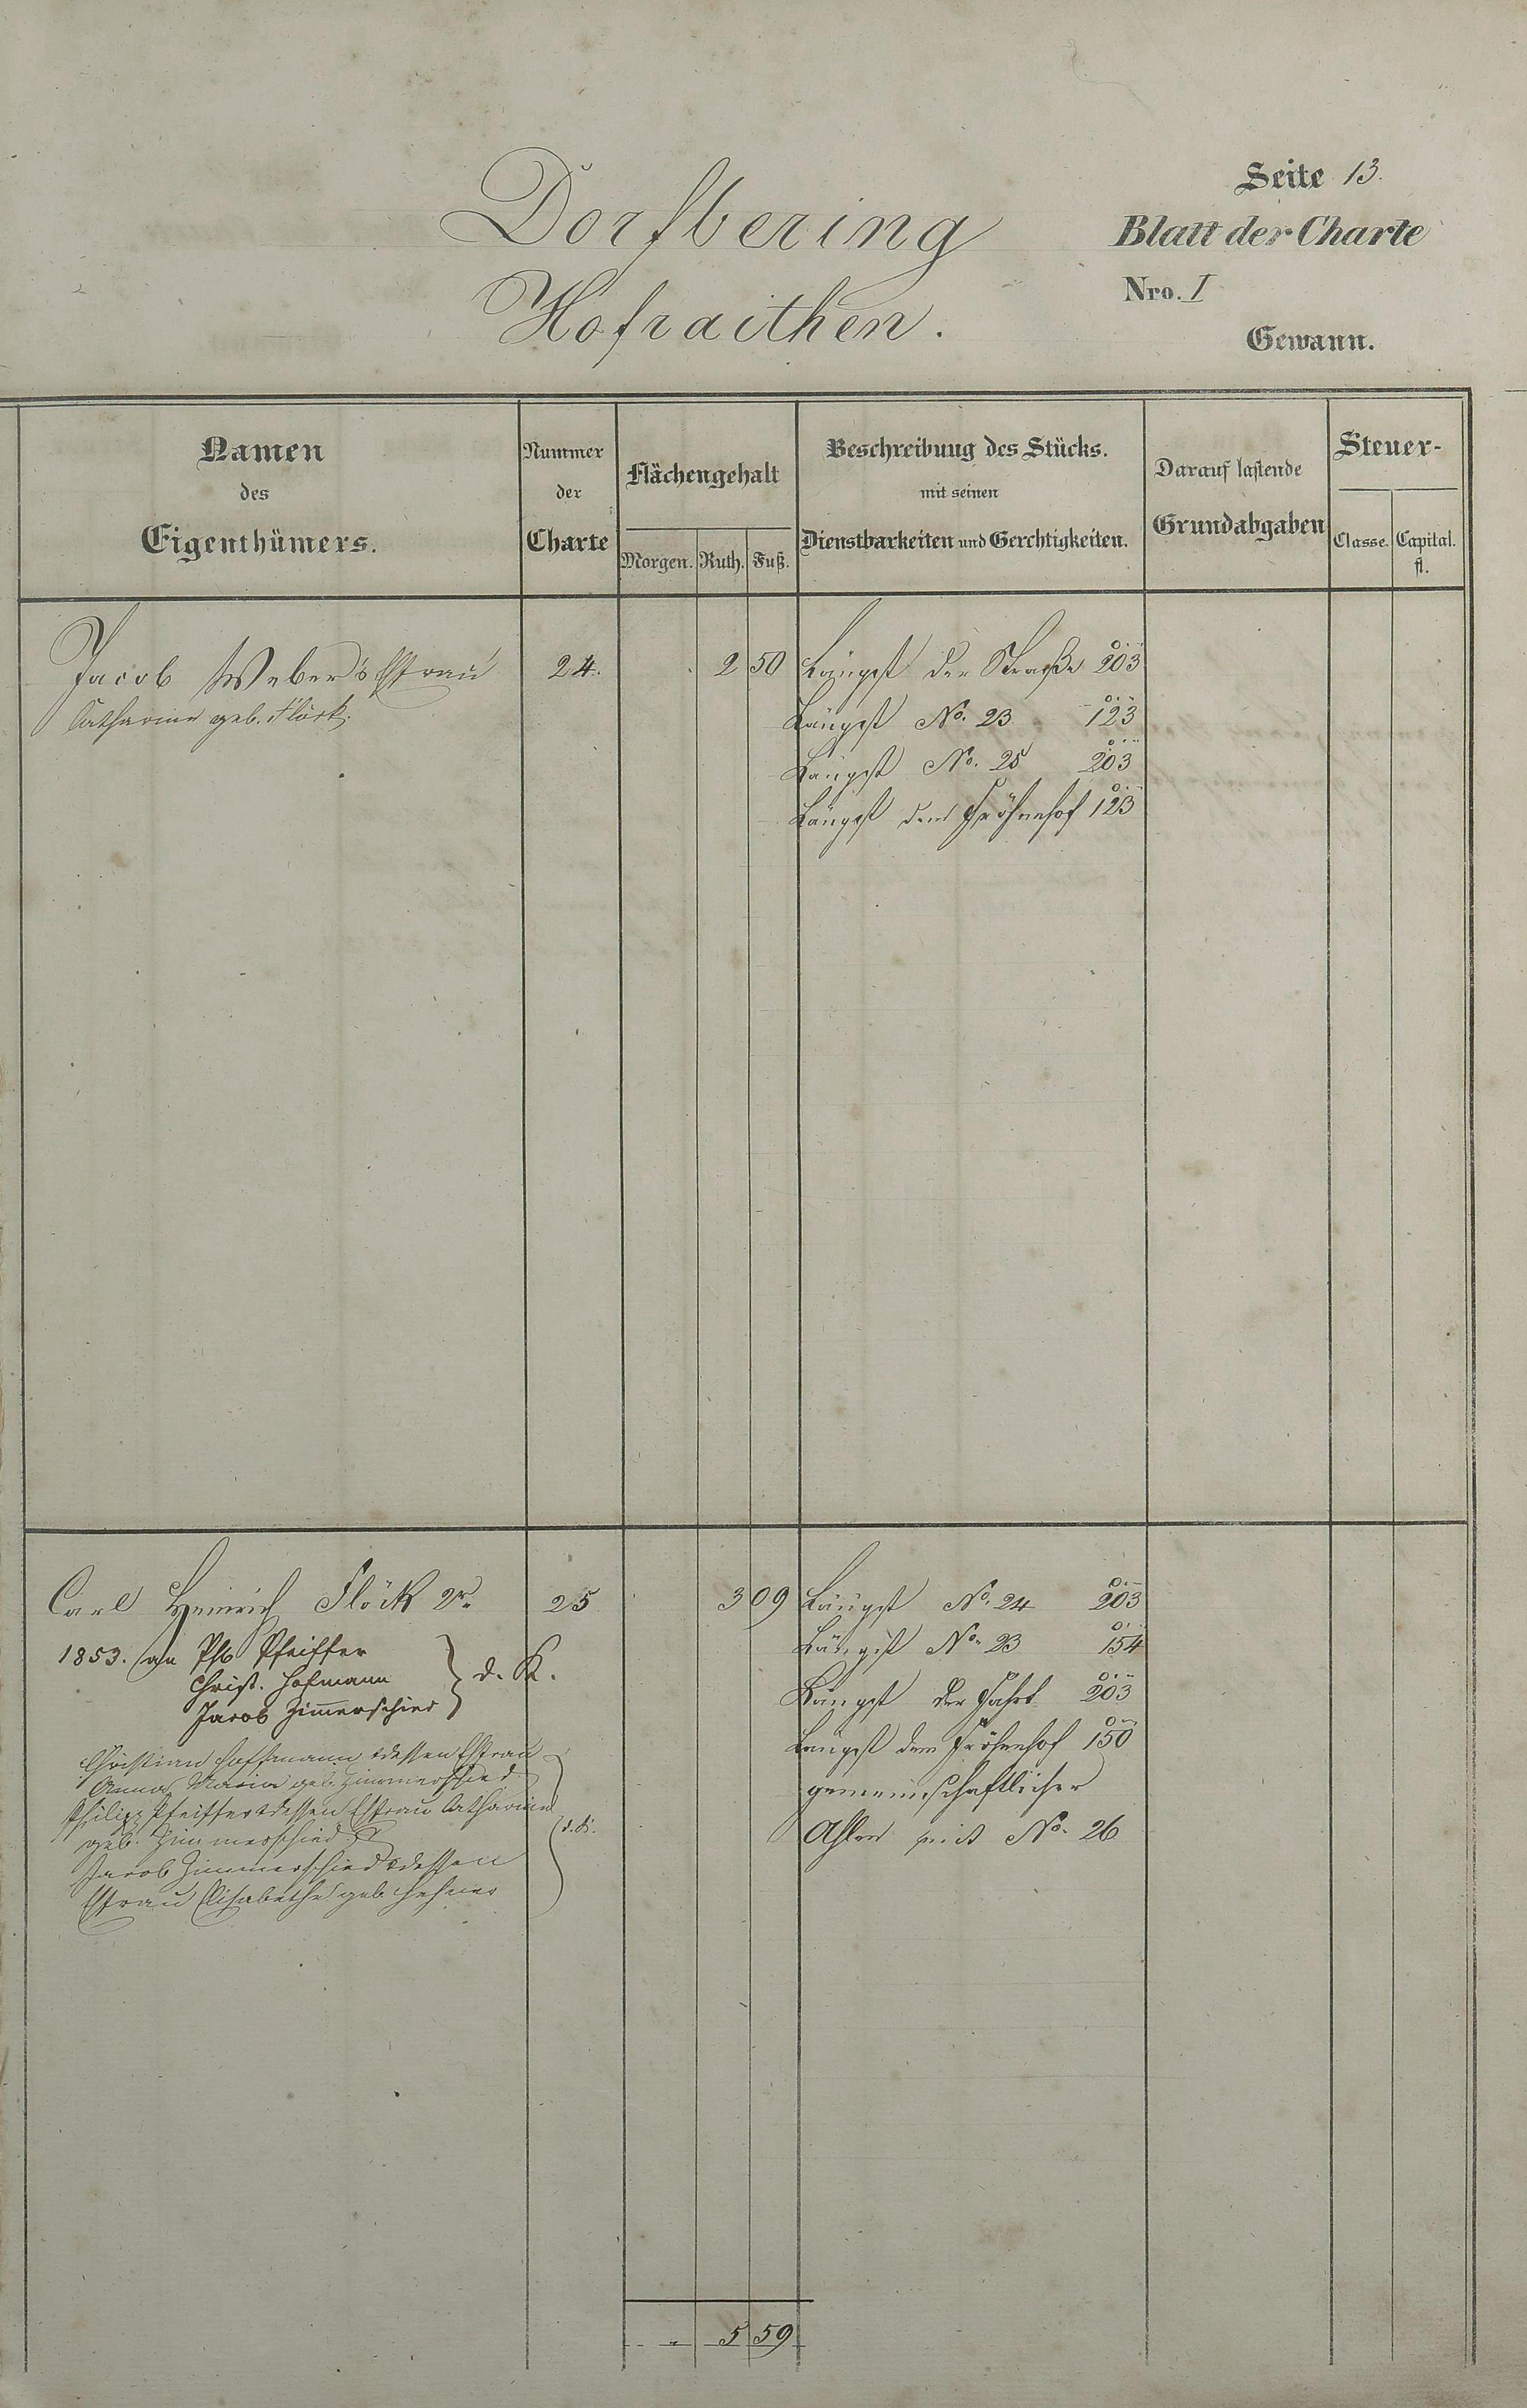 Seite 13.
Dorfbering
Blatt der Charte
Hofraithen.
Nro. I
Gewann.
Namen des Eigenthümers.
Nummer der Charte
Flächengehalt
Morgen. Ruth. Fuß.
Beschreibung des Stücks. mit seinen Dienstbarkeiten und Gerechtigkeiten.
Darauf lastende Grundabgaben
Steuer-
Classe. Capital. fl.
Jacob Weber's Efrau 24. 2 50 Längst der Straße 203
Catharine geb. Flöck. Längst No. 23 123
Längst No. 25 203
Längst dem Fröhnhof 123
Carl Heinrich Flöck 2r. 25 3 09 Längst No. 24 203
1853. an Phb Pfeiffer Längst No. 23 154
Christ. Hofmann } d. K. Längst der Fahrt 203
Jacob Zimmerschied Längst dem Fröhnhof 150
Christian Hoffmann & dessen Efrau
Anna Maria geb. Zimmerschied gemeinschaftlicher
Philipp Pfeiffer & dessen Efrau Catharina
geb. Zimmerschied } d. K. Ahlen mit No. 26
Jacob Zimmerschied & dessen
Efrau Elisabethe geb. Hehner
5 59